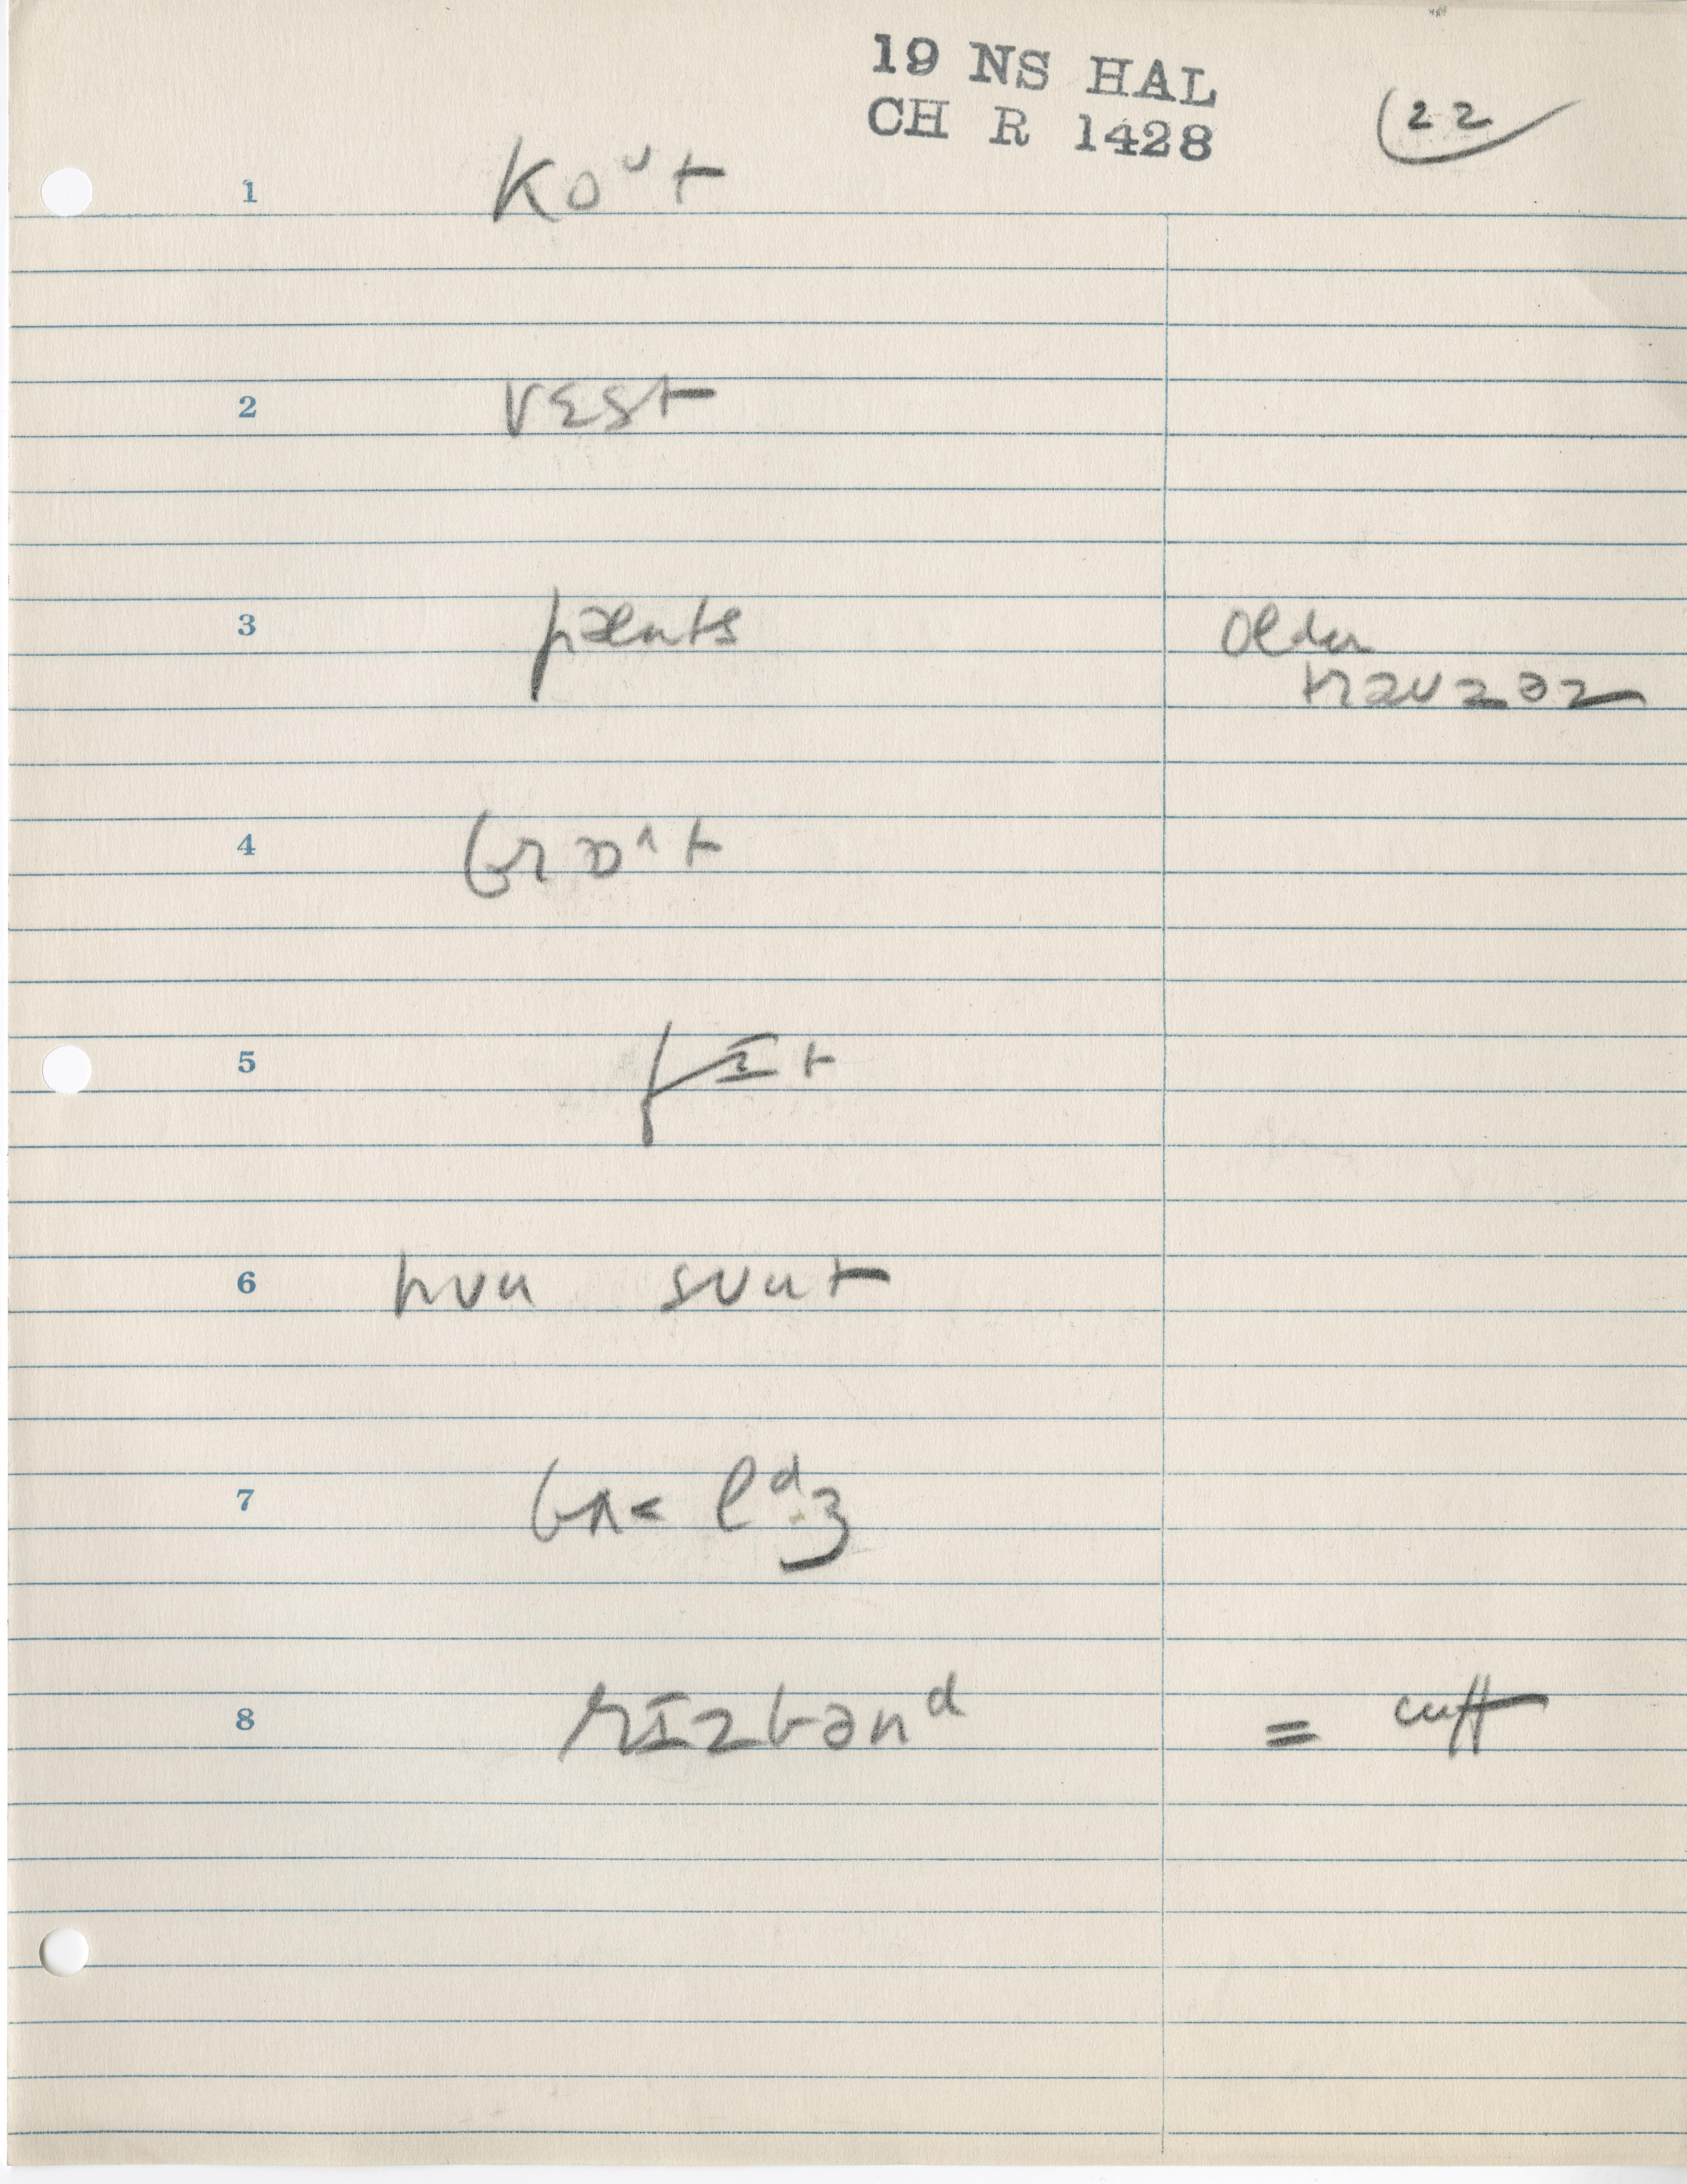 19 NS HAL
CH R 1428
22
1 koᶷt
2 vɛst
3 pænts
older
traʊzəz
4 brɒˆt
5 fɪt
6 nuu suut
7 bʌ< lᵈʒ
8 rɪzbənᵈ = cuff